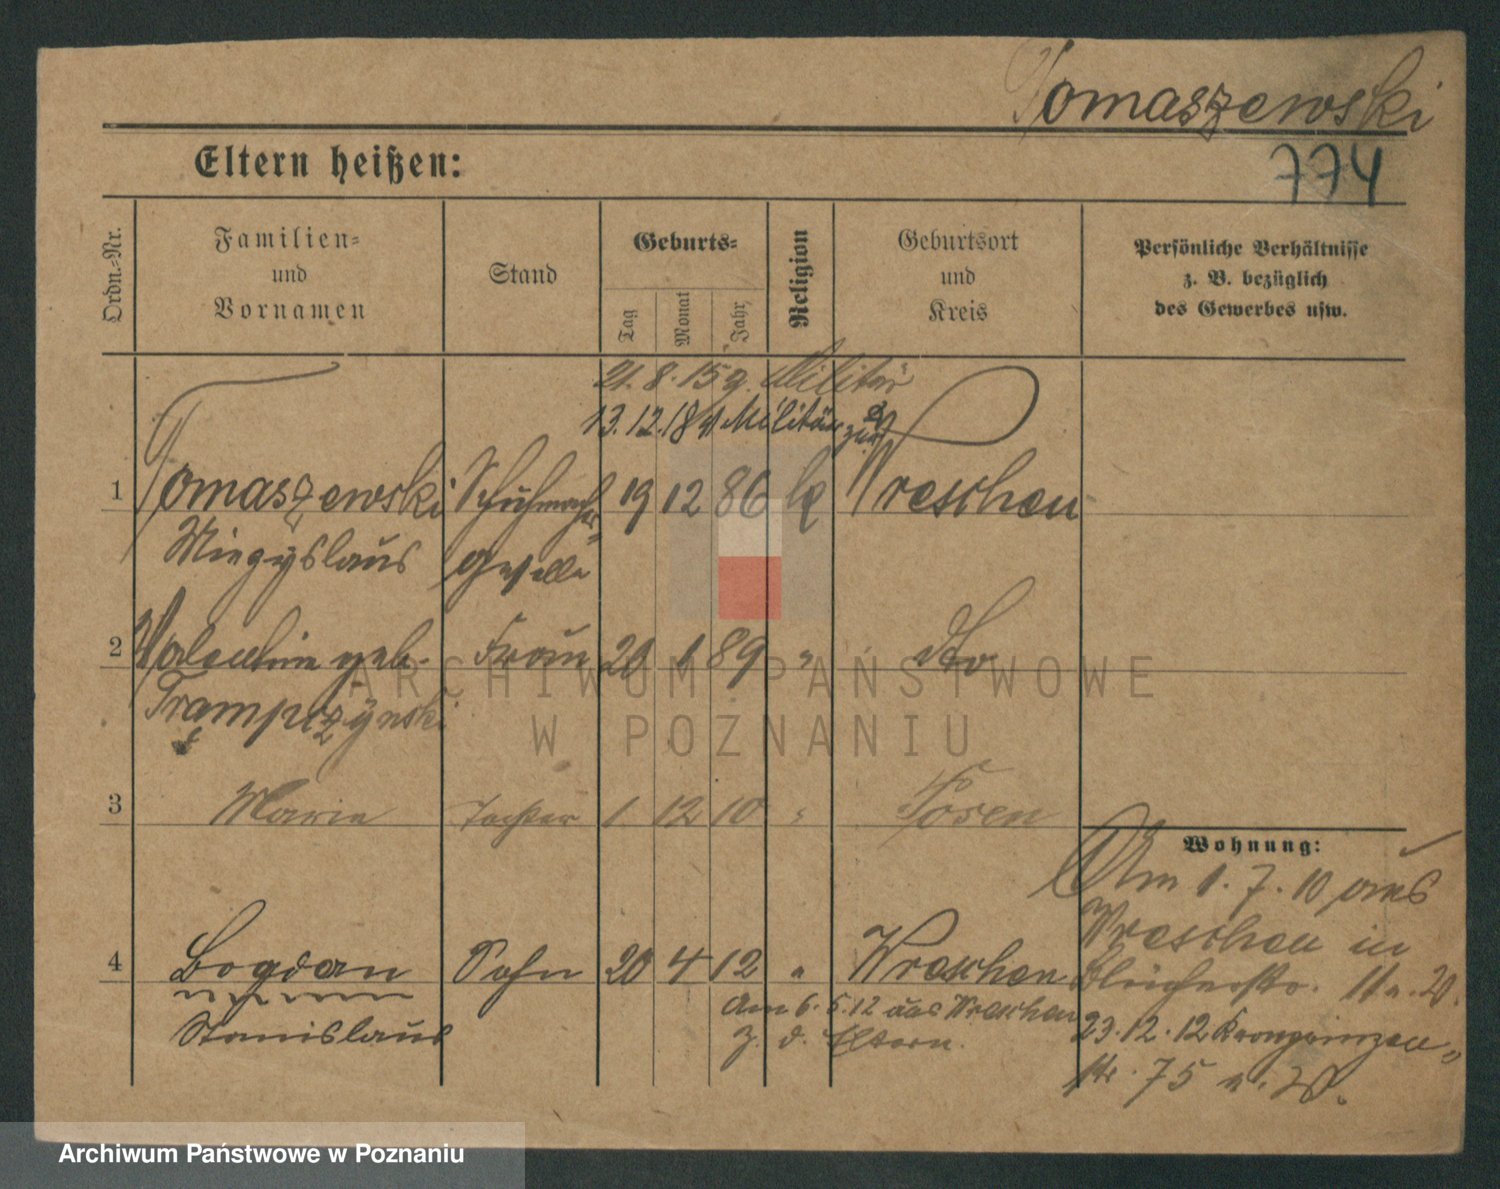 Tomaszewski
774
Eltern heißen:
Ordn.-Nr.
Familien-
und
Vornamen
Stand
Geburts-
Tag
Monat
Jahr
Religion
Geburtsort
und
Kreis
Persönliche Verhältnisse
z. B. bezüglich
des Gewerbes usw.
21. 8. 15 z. Militär
13.12.18 v Militär zur
1 Tomaszewski Schuhmacher- 19 12 86 k Wreschen
Miezyslaus geselle
2 Valentine geb. Frau 20 1 89 " dto
Trampczynski
3 Marie Tochter 1 12 10 " Posen
Wohnung:
Am 1. 7. 10 aus
Wreschen in
4 Bogdan Sohn 20 4 12 " Wreschen
Bleicherstr. 11 a. W.
Stanislaus
Am 6. 5. 12 aus Wreschen
z. d. Eltern.
23. 12. 12 Kronprinzen-
str. 75 b. W.
ARCHIWUM PAŃSTWOWE
W POZNANIU
Archiwum Państwowe w Poznaniu